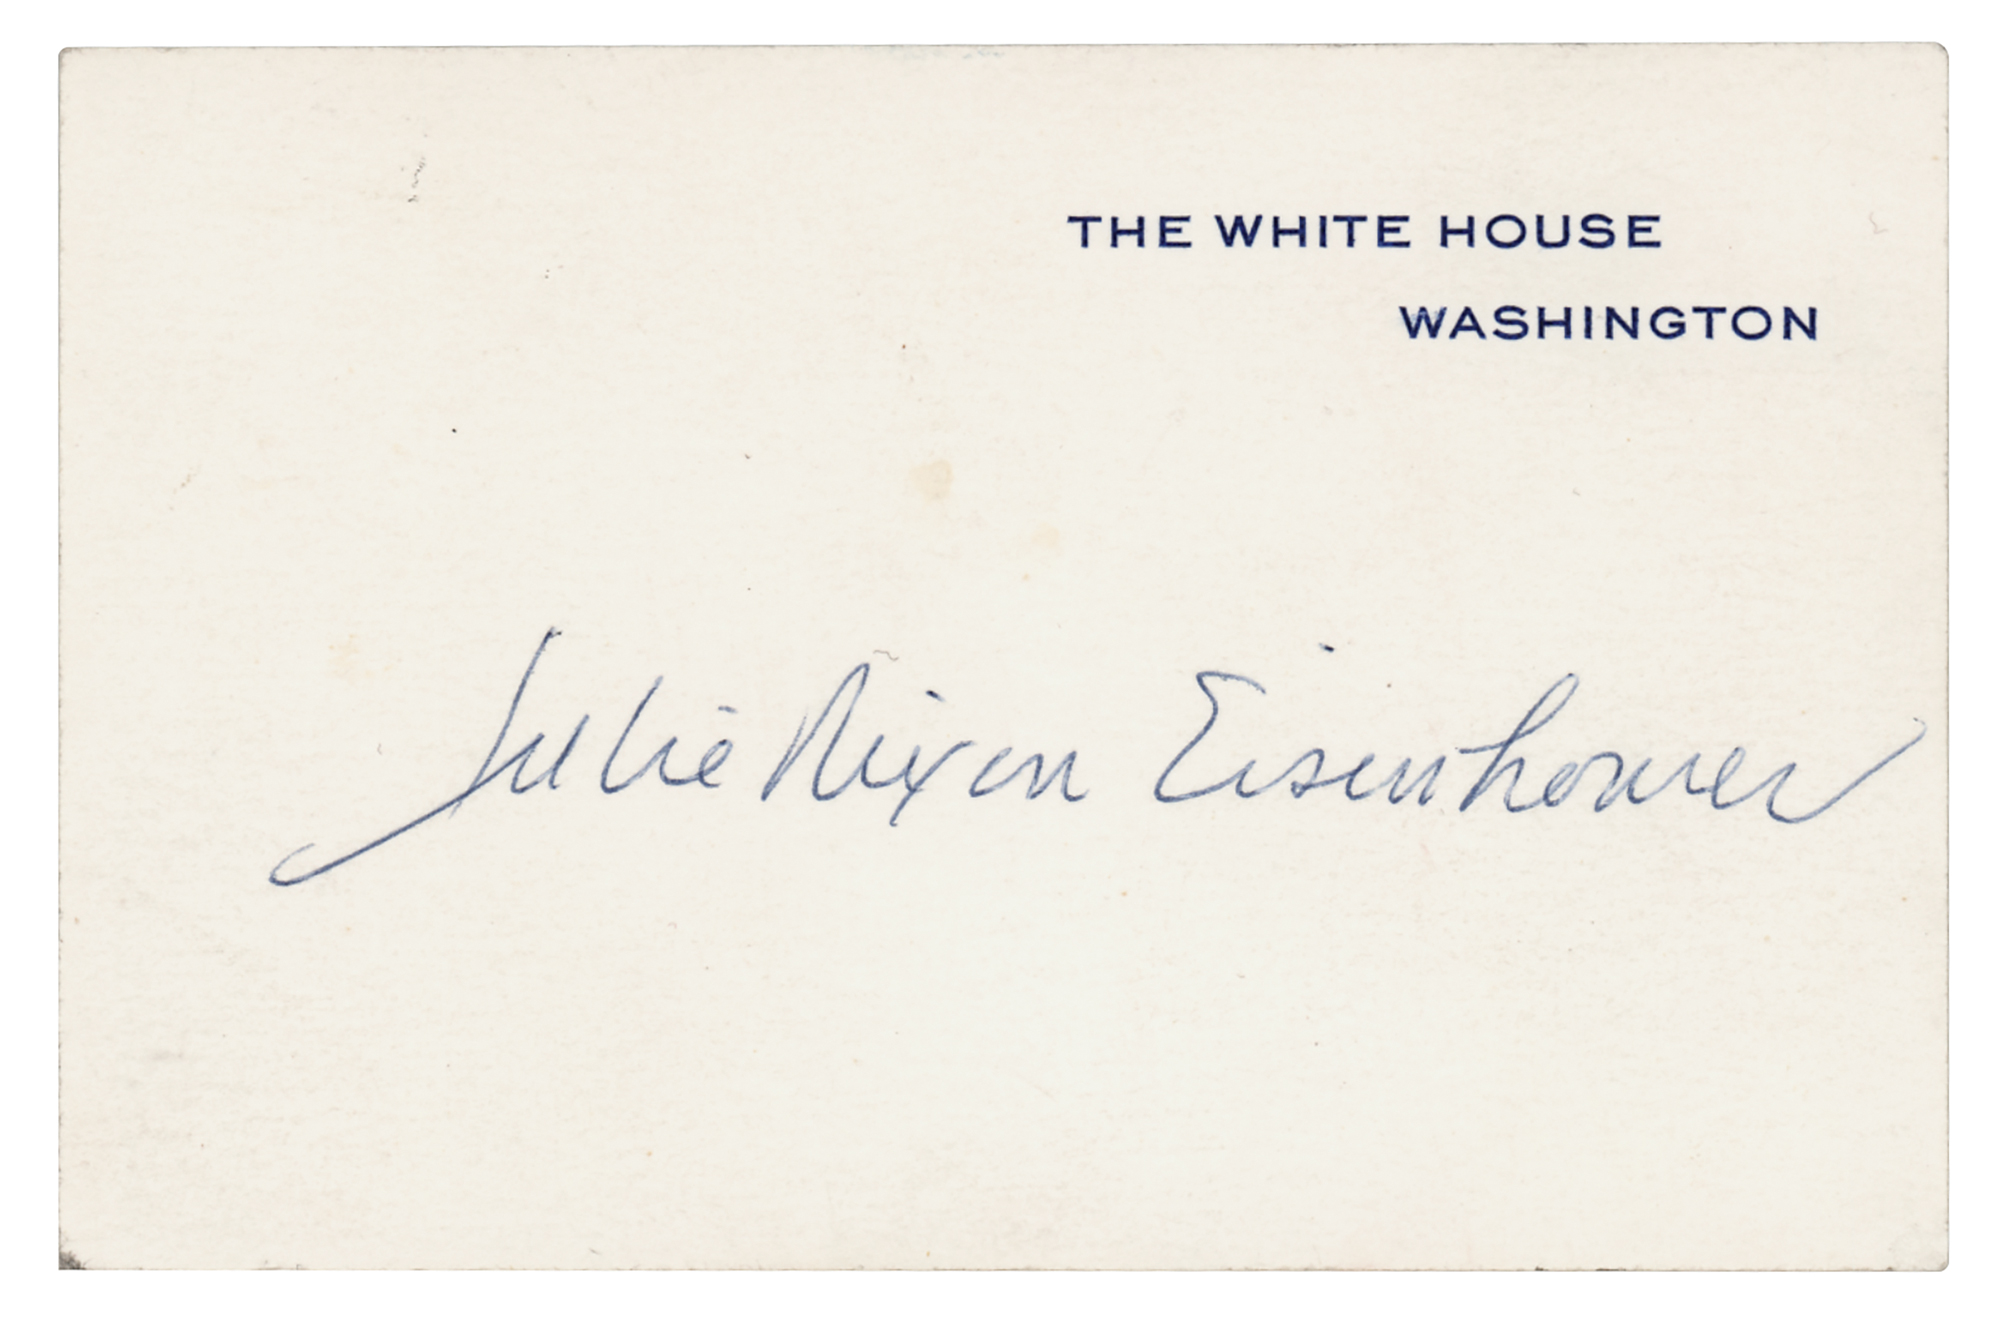 THE WHITE HOUSE
WASHINGTON
Julie Nixon Eisenhower